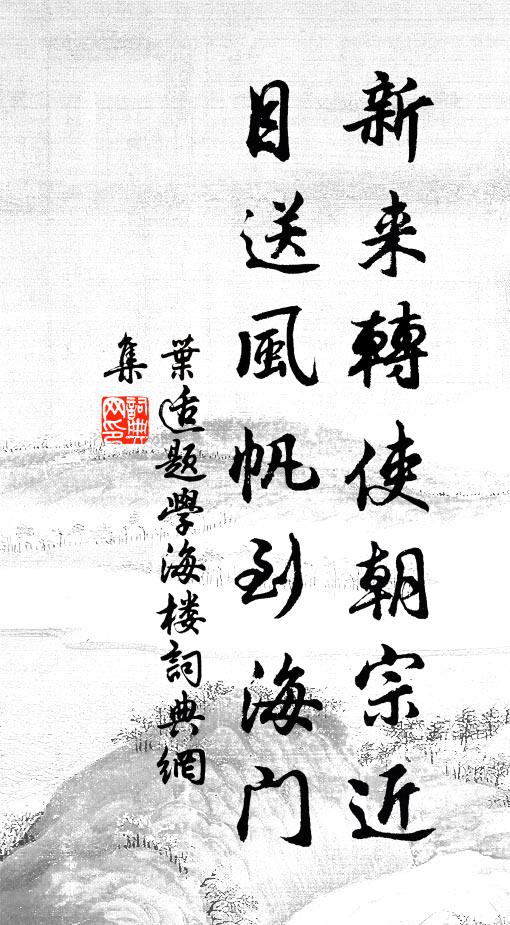 新来轉使朝宗近
目送風帆到海门
葉适題學海楼詞典網
集
詞典網印